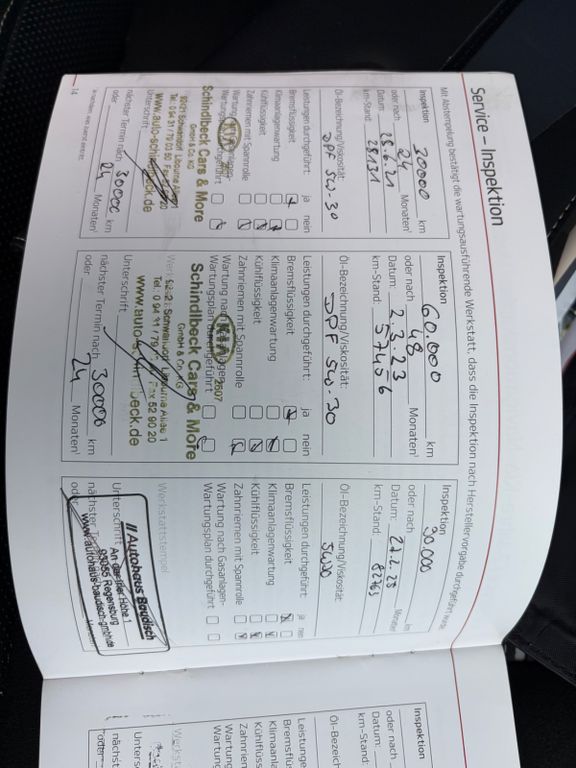 Service – Inspektion
Mit Abstempelung bestätigt die wartungsausführende Werkstatt, dass die Inspektion nach Herstellervorgabe durchgeführt wurde.
Inspektion 30000 km
oder nach 24 Monaten¹
Datum: 28.6.21
km-Stand: 28131
Öl-Bezeichnung/Viskosität:
DPF 5W-30
Leistungen durchgeführt: ja nein
Bremsflüssigkeit
Klimaanlagenwartung
Kühlflüssigkeit
Zahnriemen mit Spannrolle
Wartung
Wartungsplan durchgeführt
KIA
Schindlbeck Cars & More
GmbH & Co. KG
www.auto-schindlbeck.de
Unterschrift
nächster Termin nach 30000 km
oder 24 Monaten¹
14
Inspektion 60.000 km
oder nach 48 Monaten¹
Datum: 2.3.23
km-Stand: 57456
Öl-Bezeichnung/Viskosität:
DPF 5W-30
Leistungen durchgeführt: ja nein
Bremsflüssigkeit
Klimaanlagenwartung
Kühlflüssigkeit
Zahnriemen mit Spannrolle
Wartung nach
Wartungsplan durchgeführt
KIA
Schindlbeck Cars & More
GmbH & Co. KG
Fax 52 90 20
Unterschrift
nächster Termin nach 30000 km
oder 24 Monaten¹
Inspektion 90.000 km
oder nach Monaten¹
Datum:
km-Stand:
Öl-Bezeichnung/Viskosität:
5W30
Leistungen durchgeführt: ja nein
Bremsflüssigkeit
Klimaanlagenwartung
Kühlflüssigkeit
Zahnriemen mit Spannrolle
Wartung nach Gasanlagen-
Wartungsplan durchgeführt
Werkstattstempel
// Autohaus Baudisch
An der Höhe 1
Regensburg
www.autohaus-baudisch-gmbh.de
Unterschrift
nächster
oder
Inspektion
oder nach
Datum:
km-Stand:
Öl-Bezeich
Leistunge
Bremsflü
Klimaanl
Kühlflüss
Zahnrie
Wartung
Wartun
Werkst
Unters
nächst
oder